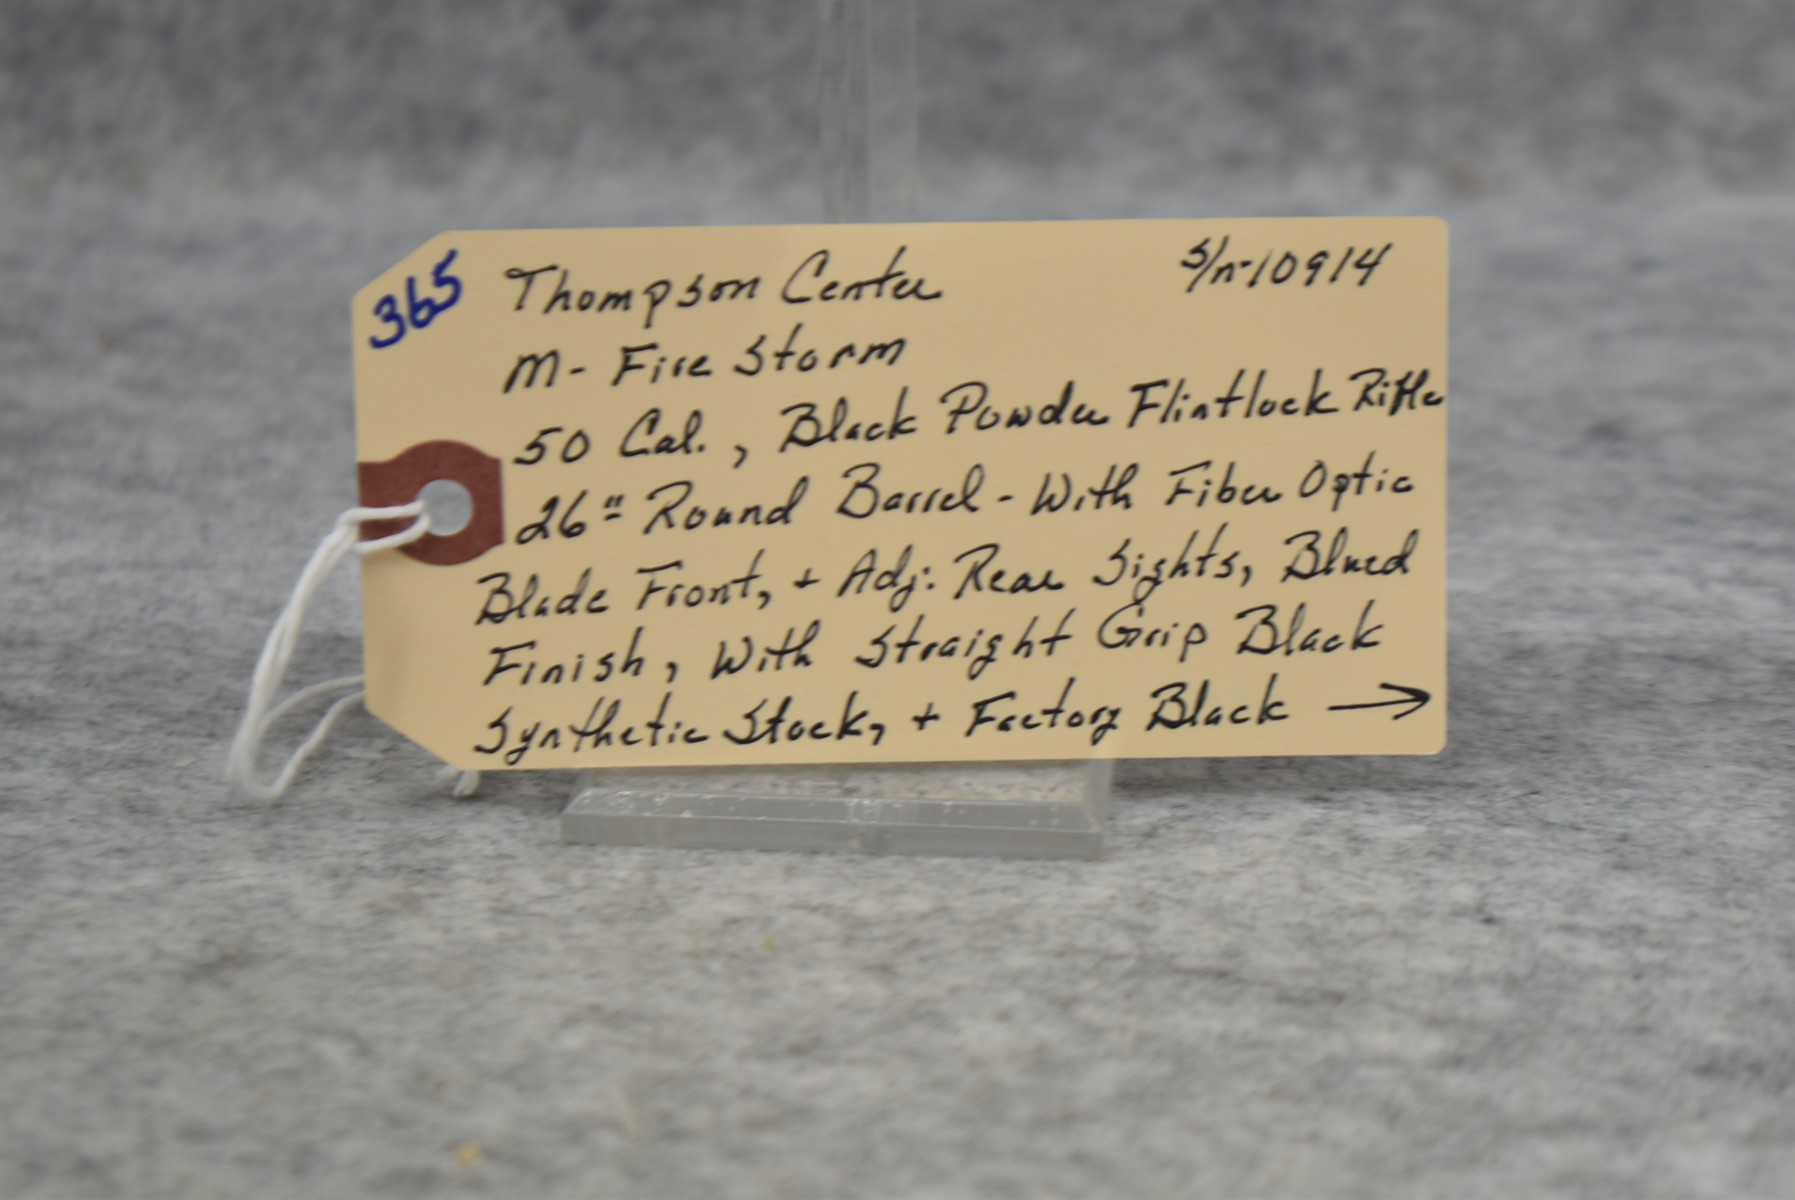 365
Thompson Center S/n-10914
M- Fire Storm
50 Cal., Black Powder Flintlock Rifle
26" Round Barrel - With Fiber Optic
Blade Front, + Adj. Rear Sights, Blued
Finish, With Straight Grip Black
Synthetic Stock, + Factory Black →